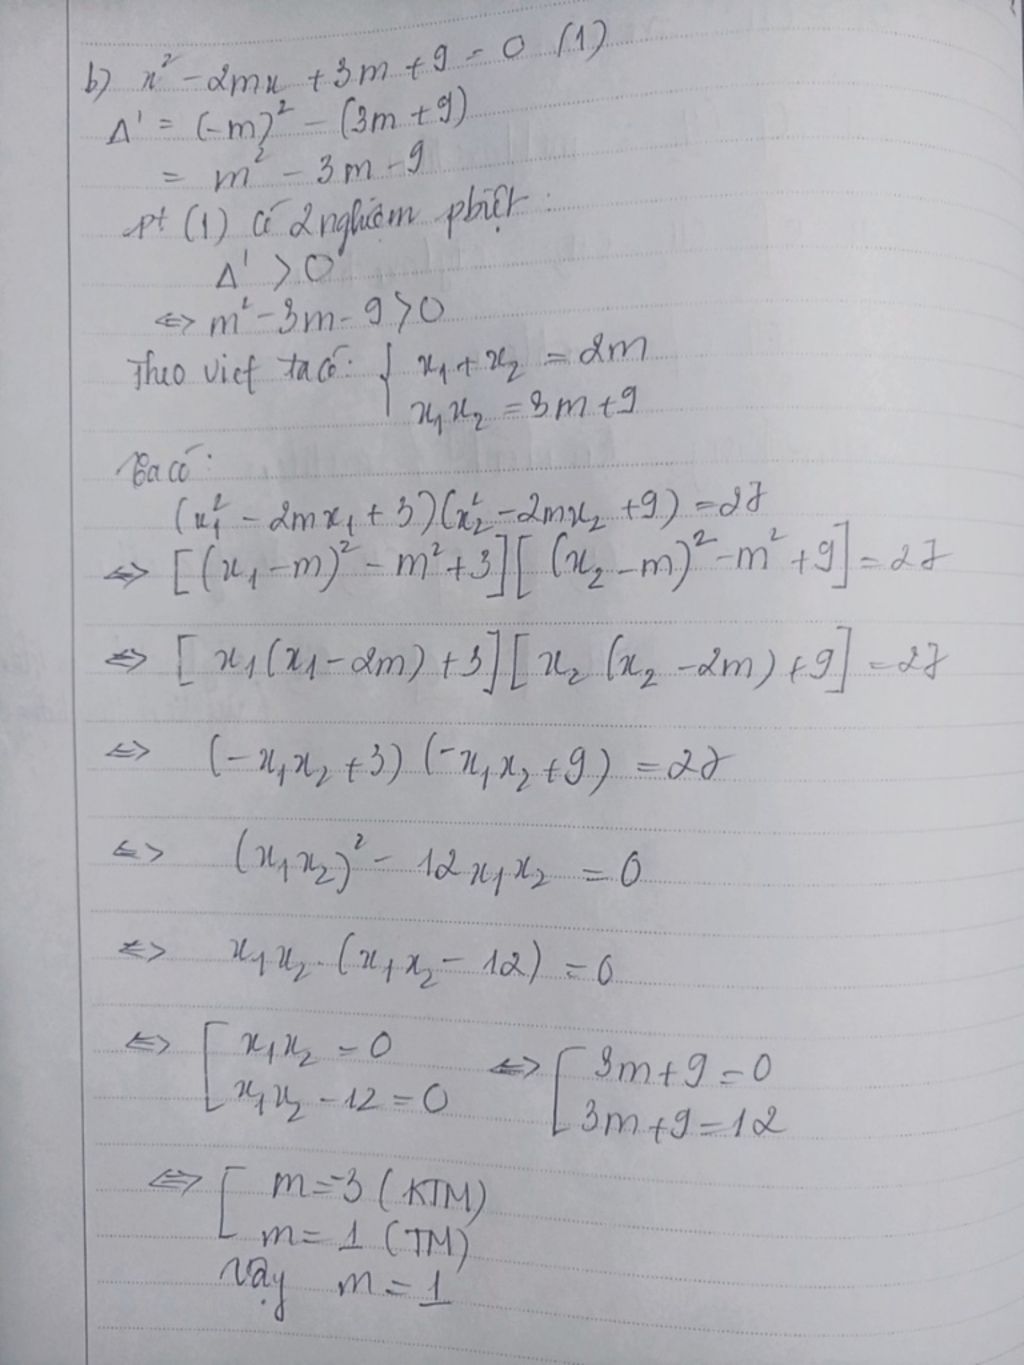 b) x² - 2mx + 3m + 9 = 0 (1)
Δ' = (-m)² - (3m + 9)
= m² - 3m - 9
pt (1) có 2 nghiệm pbiệt :
Δ' > 0
<=> m² - 3m - 9 > 0
Theo viet ta có: { x₁ + x₂ = 2m
x₁x₂ = 3m + 9
Ta có :
(x₁² - 2mx₁ + 3)(x₂² - 2mx₂ + 9) = 27
<=> [(x₁ - m)² - m² + 3][(x₂ - m)² - m² + 9] = 27
<=> [x₁(x₁ - 2m) + 3][x₂(x₂ - 2m) + 9] = 27
<=> (-x₁x₂ + 3)(-x₁x₂ + 9) = 27
<=> (x₁x₂)² - 12x₁x₂ = 0
<=> x₁x₂.(x₁x₂ - 12) = 0
<=> [ x₁x₂ = 0 <=> [ 3m + 9 = 0
x₁x₂ - 12 = 0 3m + 9 = 12
<=> [ m = -3 (KTM)
m = 1 (TM)
Vậy m = 1